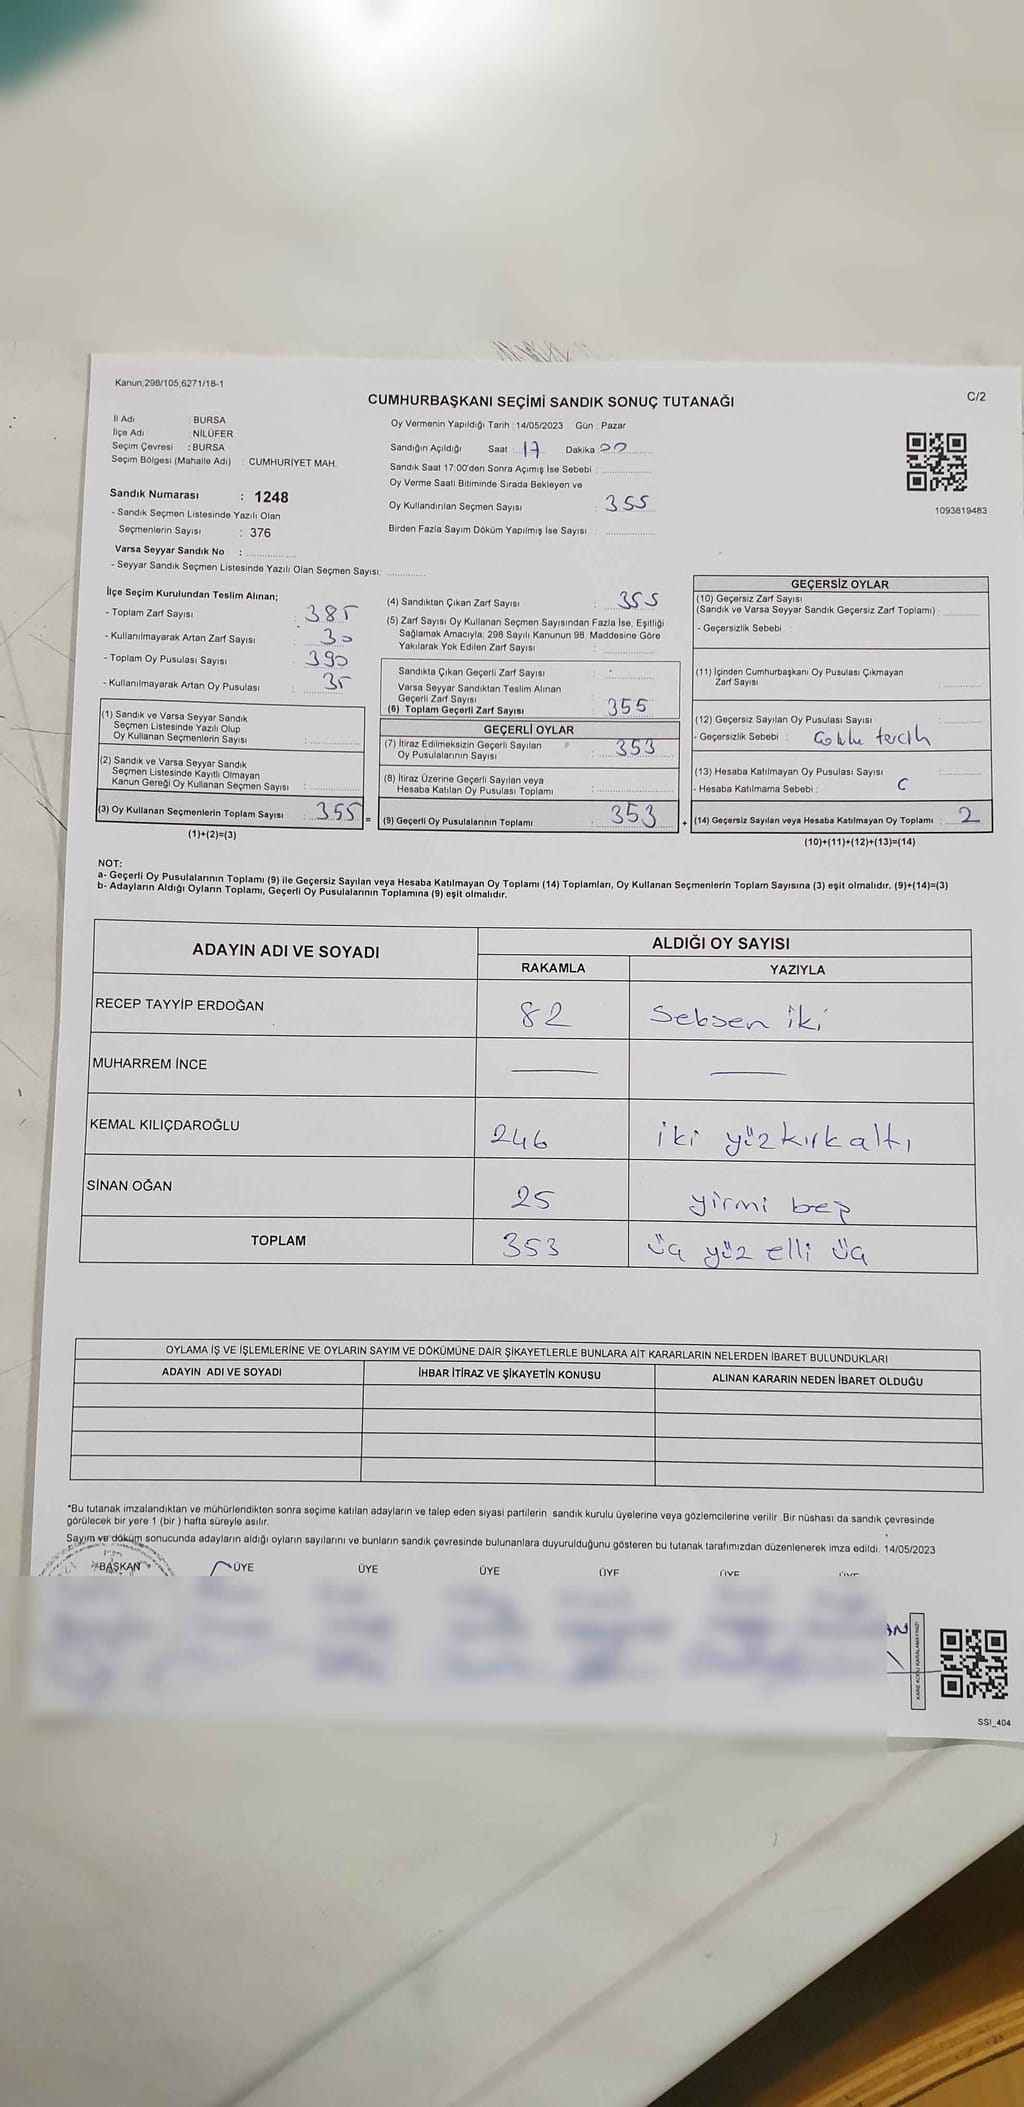 Kanun;298/105;6271/18-1
C/2
CUMHURBAŞKANI SEÇİMİ SANDIK SONUÇ TUTANAĞI
İl Adı : BURSA
İlçe Adı : NİLÜFER
Seçim Çevresi : BURSA
Seçim Bölgesi (Mahalle Adı) : CUMHURİYET MAH.
Sandık Numarası : 1248
- Sandık Seçmen Listesinde Yazılı Olan
Seçmenlerin Sayısı : 376
Varsa Seyyar Sandık No :
- Seyyar Sandık Seçmen Listesinde Yazılı Olan Seçmen Sayısı:
Oy Vermenin Yapıldığı Tarih : 14/05/2023 Gün : Pazar
Sandığın Açıldığı Saat : 17 Dakika
Sandık Saat 17:00'den Sonra Açılmış İse Sebebi :
Oy Verme Saati Bitiminde Sırada Bekleyen ve
Oy Kullandırılan Seçmen Sayısı : 355
Birden Fazla Sayım Döküm Yapılmış İse Sayısı :
1093819483
İlçe Seçim Kurulundan Teslim Alınan;
- Toplam Zarf Sayısı : 385
- Kullanılmayarak Artan Zarf Sayısı : 30
- Toplam Oy Pusulası Sayısı : 390
- Kullanılmayarak Artan Oy Pusulası : 35
(1) Sandık ve Varsa Seyyar Sandık
Seçmen Listesinde Yazılı Olup
Oy Kullanan Seçmenlerin Sayısı :
(2) Sandık ve Varsa Seyyar Sandık
Seçmen Listesinde Kayıtlı Olmayan
Kanun Gereği Oy Kullanan Seçmen Sayısı :
(3) Oy Kullanan Seçmenlerin Toplam Sayısı : 355 =
(1)+(2)=(3)
(4) Sandıktan Çıkan Zarf Sayısı : 355
(5) Zarf Sayısı Oy Kullanan Seçmen Sayısından Fazla İse, Eşitliği
Sağlamak Amacıyla; 298 Sayılı Kanunun 98. Maddesine Göre
Yakılarak Yok Edilen Zarf Sayısı :
Sandıkta Çıkan Geçerli Zarf Sayısı :
Varsa Seyyar Sandıktan Teslim Alınan
Geçerli Zarf Sayısı :
(6) Toplam Geçerli Zarf Sayısı 355
GEÇERLİ OYLAR
(7) İtiraz Edilmeksizin Geçerli Sayılan
Oy Pusulalarının Sayısı : 353
(8) İtiraz Üzerine Geçerli Sayılan veya
Hesaba Katılan Oy Pusulası Toplamı :
(9) Geçerli Oy Pusulalarının Toplamı : 353 +
GEÇERSİZ OYLAR
(10) Geçersiz Zarf Sayısı
(Sandık ve Varsa Seyyar Sandık Geçersiz Zarf Toplamı) :
- Geçersizlik Sebebi :
(11) İçinden Cumhurbaşkanı Oy Pusulası Çıkmayan
Zarf Sayısı :
(12) Geçersiz Sayılan Oy Pusulası Sayısı :
- Geçersizlik Sebebi : tercih
(13) Hesaba Katılmayan Oy Pusulası Sayısı :
- Hesaba Katılmama Sebebi :
(14) Geçersiz Sayılan veya Hesaba Katılmayan Oy Toplamı : 2
(10)+(11)+(12)+(13)=(14)
NOT:
a- Geçerli Oy Pusulalarının Toplamı (9) ile Geçersiz Sayılan veya Hesaba Katılmayan Oy Toplamı (14) Toplamları, Oy Kullanan Seçmenlerin Toplam Sayısına (3) eşit olmalıdır. (9)+(14)=(3)
b- Adayların Aldığı Oyların Toplamı, Geçerli Oy Pusulalarının Toplamına (9) eşit olmalıdır.
ADAYIN ADI VE SOYADI
ALDIĞI OY SAYISI
RAKAMLA YAZIYLA
RECEP TAYYİP ERDOĞAN 82 Seksen iki
MUHARREM İNCE
KEMAL KILIÇDAROĞLU 246 iki yüz kırk altı
SİNAN OĞAN 25 yirmi beş
TOPLAM 353 üç yüz elli üç
OYLAMA İŞ VE İŞLEMLERİNE VE OYLARIN SAYIM VE DÖKÜMÜNE DAİR ŞİKAYETLERLE BUNLARA AİT KARARLARIN NELERDEN İBARET BULUNDUKLARI
ADAYIN ADI VE SOYADI İHBAR İTİRAZ VE ŞİKAYETİN KONUSU ALINAN KARARIN NEDEN İBARET OLDUĞU
*Bu tutanak imzalandıktan ve mühürlendikten sonra seçime katılan adayların ve talep eden siyasi partilerin sandık kurulu üyelerine veya gözlemcilerine verilir. Bir nüshası da sandık çevresinde
görülecek bir yere 1 (bir ) hafta süreyle asılır.
Sayım ve döküm sonucunda adayların aldığı oyların sayılarını ve bunların sandık çevresinde bulunanlara duyurulduğunu gösteren bu tutanak tarafımızdan düzenlenerek imza edildi. 14/05/2023
BAŞKAN ÜYE ÜYE ÜYE ÜYE ÜYE ÜYE
KARE KODU KARALAMAYINIZ!
SSI_404